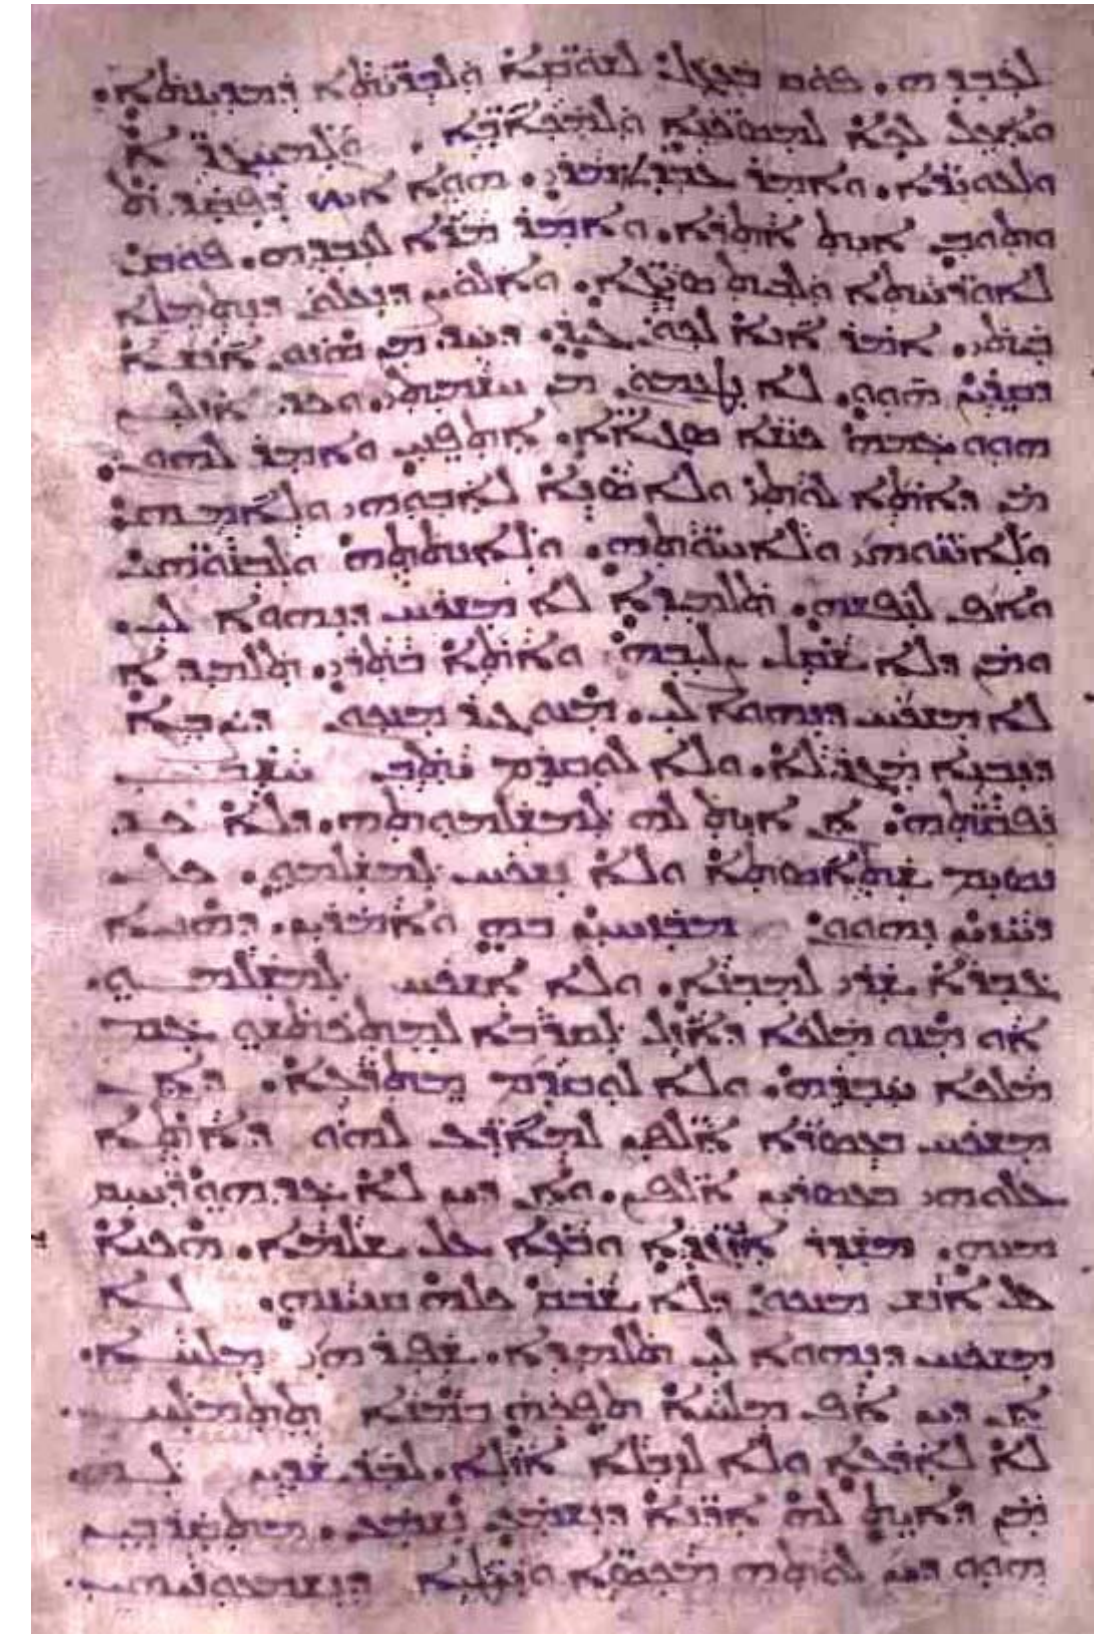 ܠܥܒܕܗ. ܦܘܩ ܒܥܓܠ ܠܫܘܩ̈ܐ ܘܠܒܪ̈ܝܬܐ ܕܡܕܝܢܬܐ.
ܘܐܥܠ ܠܟܐ ܠܡܣܟ̈ܢܐ ܘܠܡܟܐ̈ܒܐ. ܘܠܚܓܝܪ̈ܐ
ܘܠܥܘܝܪ̈ܐ. ܘܐܡܪ ܥܒܕܐ ܡܪܝ. ܗܘܐ ܐܝܟ ܕܦܩܕܬ
ܘܬܘܒ ܐܝܬ ܐܬܪܐ. ܘܐܡܪ ܡܪܐ ܠܥܒܕܗ. ܦܘܩ
ܠܐܘܪ̈ܚܬܐ ܘܠܒܝܬ ܣܝ̈ܓܐ. ܘܐܠܘܨ ܕܢܥܠܘܢ ܕܢܬܡܠܐ
ܒܝܬܝ. ܐܡܪ ܐܢܐ ܠܟܘܢ ܓܝܪ. ܕܚܕ ܡܢ ܗܢܘܢ ܐܢܫܐ
ܕܩܪܝܢ ܗܘܘ. ܠܐ ܢܛܥܡܘܢ ܡܢ ܚܫܡܝܬܝ. ܘܟܕ ܐܙܠܝܢ
ܗܘܘ ܥܡܗ ܟܢܫ̈ܐ ܣܓܝܐ̈ܐ. ܐܬܦܢܝ ܘܐܡܪ ܠܗܘܢ.
ܡܢ ܕܐܬܐ ܠܘܬܝ ܘܠܐ ܣܢܐ ܠܐܒܘܗܝ ܘܠܐܡܗ
ܘܠܐܚ̈ܘܗܝ ܘܠܐܚ̈ܘܬܗ. ܘܠܐܢܬܬܗ ܘܠܒܢ̈ܘܗܝ
ܘܐܦ ܠܢܦܫܗ. ܬܠܡܝܕܐ ܠܐ ܡܫܟܚ ܕܢܗܘܐ ܠܝ.
ܘܡܢ ܕܠܐ ܫܩܠ ܨܠܝܒܗ ܘܐܬܐ ܒܬܪܝ. ܬܠܡܝܕܐ
ܠܐ ܡܫܟܚ ܕܢܗܘܐ ܠܝ. ܡܢܘ ܓܝܪ ܡܢܟܘܢ ܕܨܒܐ
ܕܢܒܢܐ ܡܓܕܠܐ. ܘܠܐ ܠܘܩܕܡ ܝܬܒ ܚܫܒ
ܢܦܩ̈ܬܗ. ܐܢ ܐܝܬ ܠܗ ܠܡܫܠܡܘܬܗ. ܕܠܐ ܟܕ
ܢܣܝܡ ܫܬܐܣܬܐ ܘܠܐ ܢܫܟܚ ܠܡܫܠܡܘ. ܟܠ
ܕܚܙܝܢ ܢܗܘܘܢ ܡܒܙܚܝܢ ܒܗ ܘܐܡܪܝܢ. ܕܗܢܐ
ܓܒܪܐ ܫܪܝ ܠܡܒܢܐ. ܘܠܐ ܐܫܟܚ ܠܡܫܠܡܘ.
ܐܘ ܡܢܘ ܡܠܟܐ ܕܐܙܠ ܠܩܪܒܐ ܠܡܬܟܬܫܘ ܥܡ
ܡܠܟܐ ܚܒܪܗ. ܘܠܐ ܠܘܩܕܡ ܡܬܪܥܐ. ܕܐܢ
ܡܫܟܚ ܒܥܣܪܐ ܐܠܦܝܢ ܠܡܐܪܥ ܠܗܘ ܕܐܬܐ
ܥܠܘܗܝ ܒܥܣܪܝܢ ܐܠܦܝܢ. ܘܐܢ ܕܝܢ ܠܐ ܥܕ ܗܘ ܪܚܝܩ
ܡܢܗ. ܡܫܕܪ ܐܝܙܓܕ̈ܐ ܘܒܥܐ ܥܠ ܫܠܡܐ. ܗܟܢܐ
ܟܠ ܐܢܫ ܡܢܟܘܢ ܕܠܐ ܫܒܩ ܟܠܗ ܩܢܝܢܗ. ܠܐ
ܡܫܟܚ ܕܢܗܘܐ ܠܝ ܬܠܡܝܕܐ. ܫܦܝܪܐ ܗܝ ܡܠܚܐ.
ܐܢ ܕܝܢ ܐܦ ܡܠܚܐ ܬܦܟܗ ܒܡܢܐ ܬܬܡܠܚ.
ܠܐ ܠܐܪܥܐ ܘܠܐ ܠܙܒܠܐ ܐܙܠܐ. ܠܒܪ ܫܕܝܢ ܠܗ.
ܡܢ ܕܐܝܬ ܠܗ ܐܕ̈ܢܐ ܕܢܫܡܥ ܢܫܡܥ. ܡܬܩܪܒܝܢ
ܗܘܘ ܕܝܢ ܠܘܬܗ ܡܟܣ̈ܐ ܘܚܛܝ̈ܐ ܕܢܫܡܥܘܢܗ.